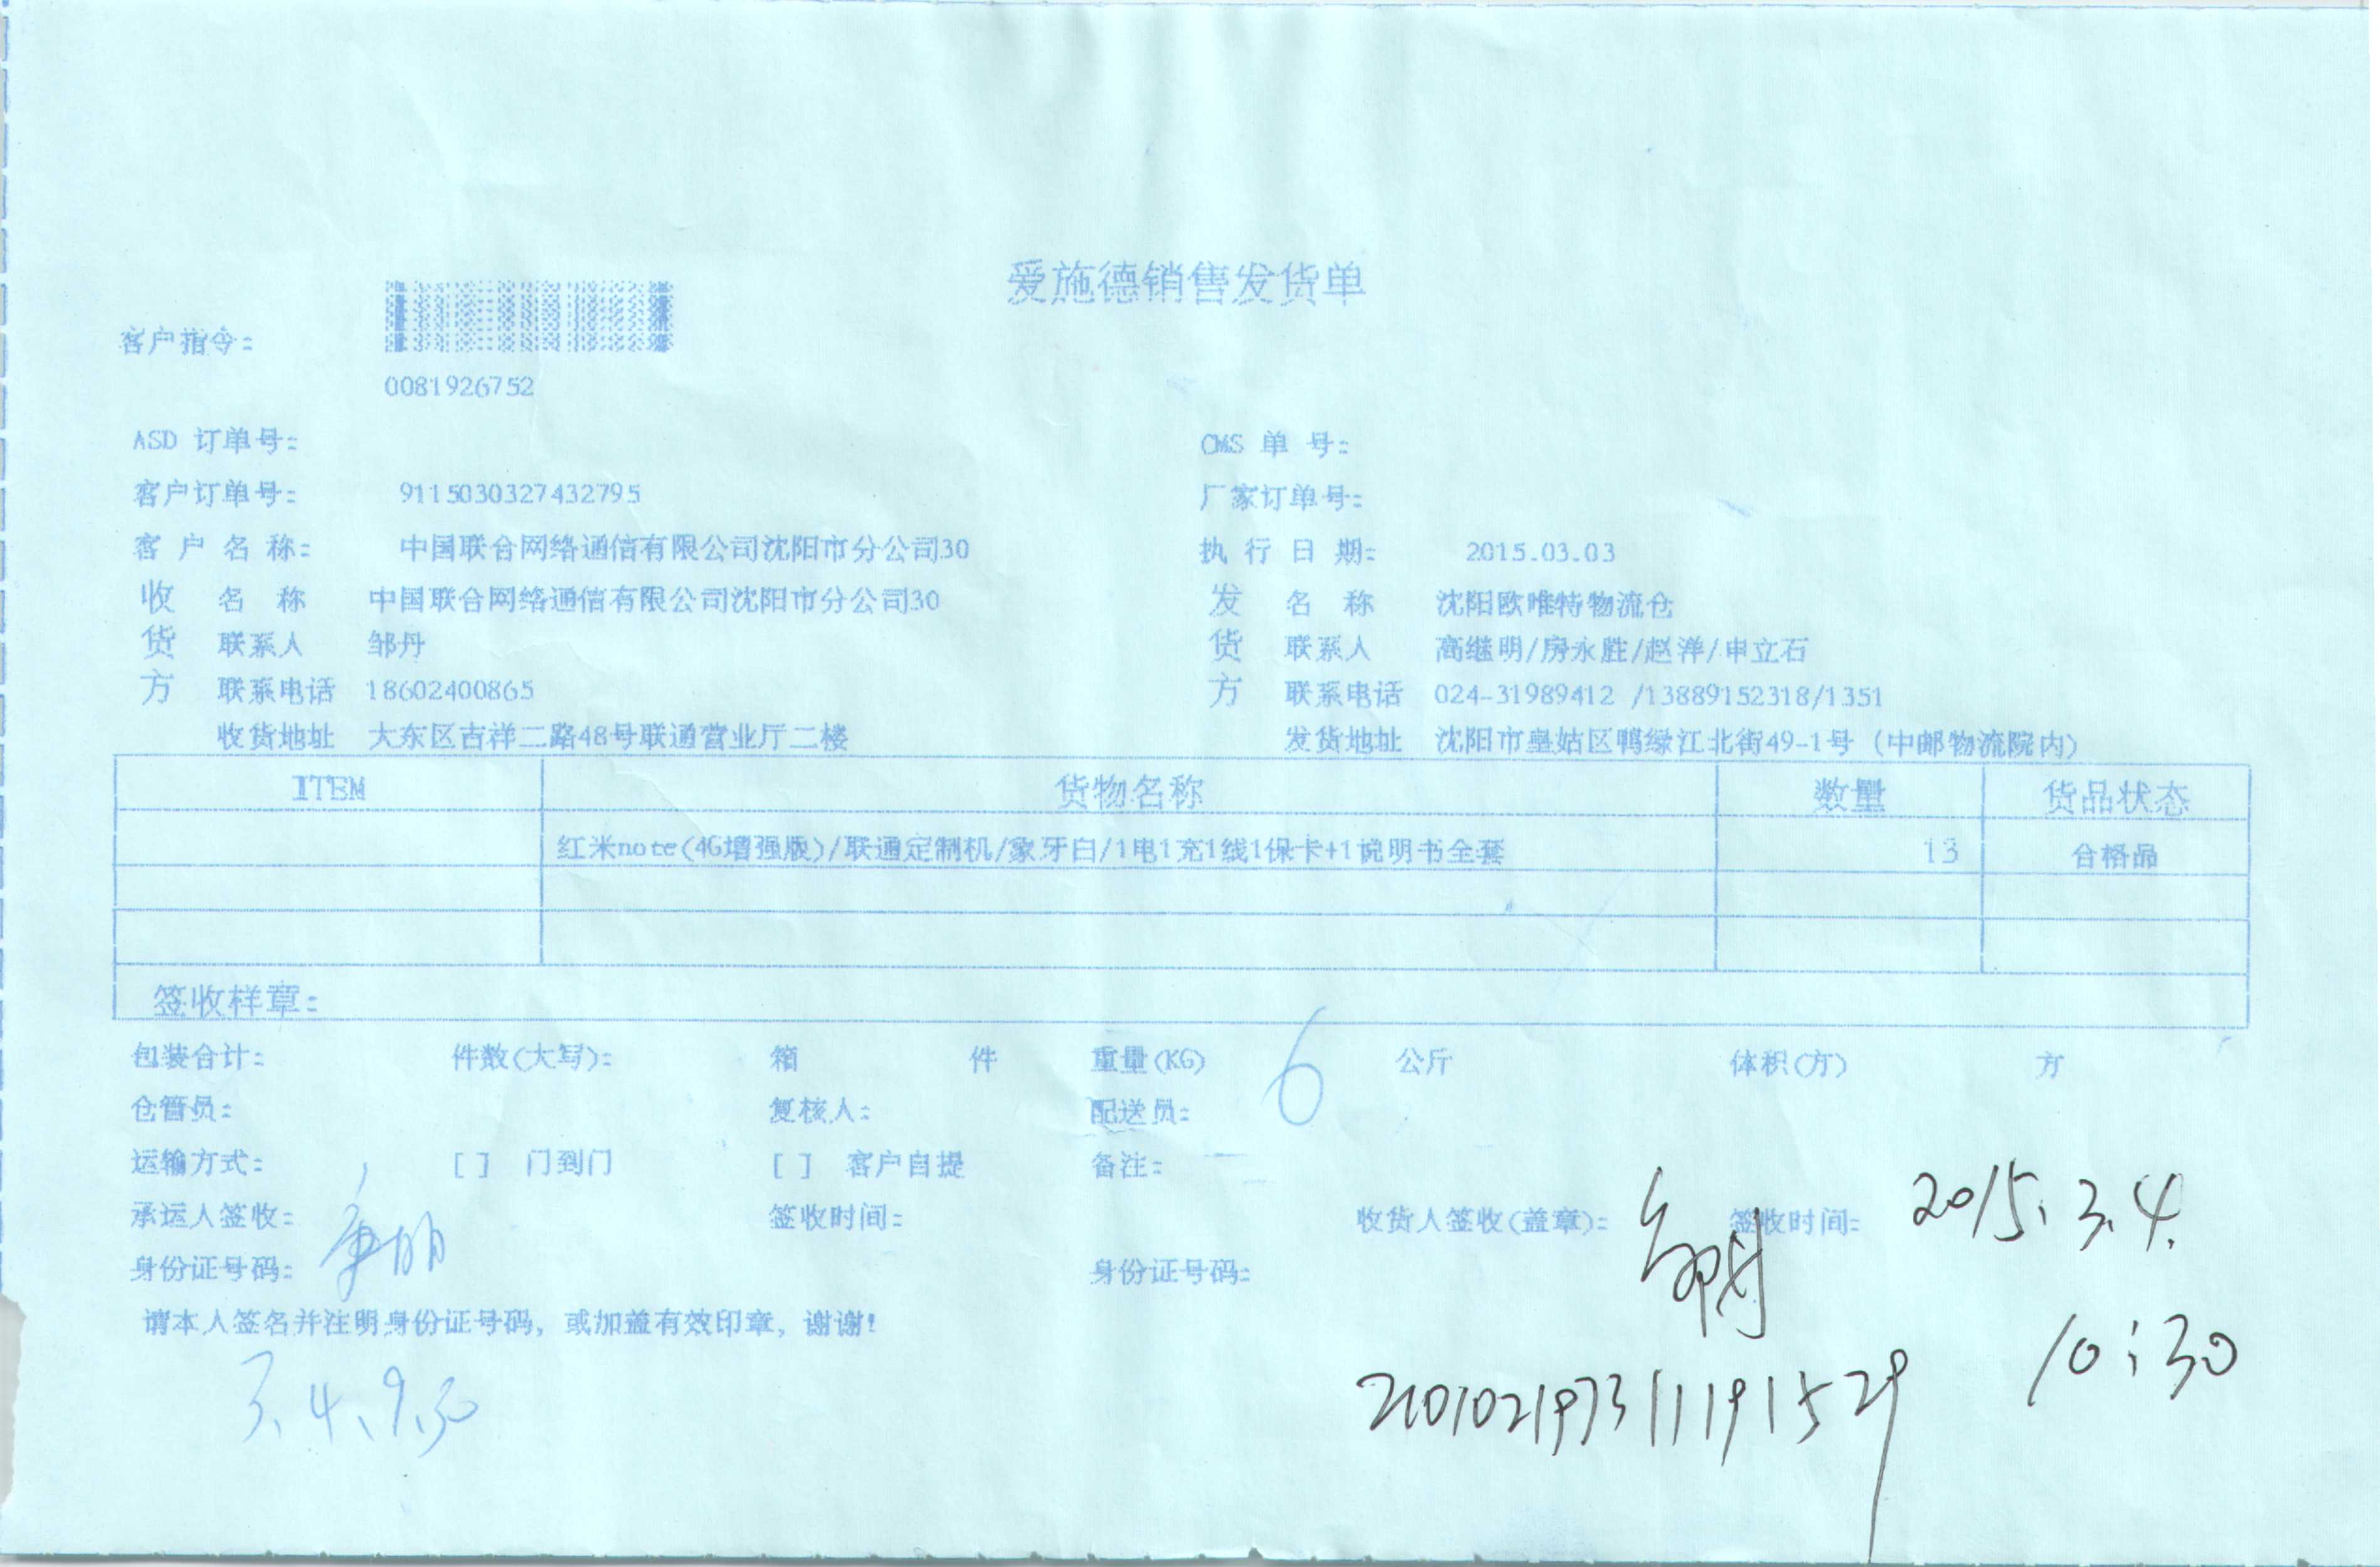 爱施德销售发货单
客户指令:
0081926752
ASD 订单号: CMS 单 号:
客户订单号: 9115030327432795 厂家订单号:
客 户 名 称: 中国联合网络通信有限公司沈阳市分公司30 执 行 日 期: 2015.03.03
收 名 称 中国联合网络通信有限公司沈阳市分公司30 发 名 称 沈阳欧唯特物流仓
货 联系人 邹丹 货 联系人 高继明/房永胜/赵洋/申立石
方 联系电话 18602400865 方 联系电话 024-31989412 /13889152318/1351
收货地址 大东区吉祥二路48号联通营业厅二楼 发货地址 沈阳市皇姑区鸭绿江北街49-1号 (中邮物流院内)
ITEM 货物名称 数量 货品状态
红米note(4G增强版)/联通定制机/象牙白/1电1充1线1保卡+1说明书全套 13 合格品
签收样章:
包装合计: 件数(大写): 箱 件 重量(KG) 6 公斤 体积(方) 方
仓管员: 复核人: 配送员:
运输方式: [ ] 门到门 [ ] 客户自提 备注:
承运人签收: 签收时间: 收货人签收(盖章): 邹丹 签收时间: 2015.3.4.
身份证号码: 身份证号码:
请本人签名并注明身份证号码, 或加盖有效印章, 谢谢! 10:30
3.4.9.30 210102197311191529